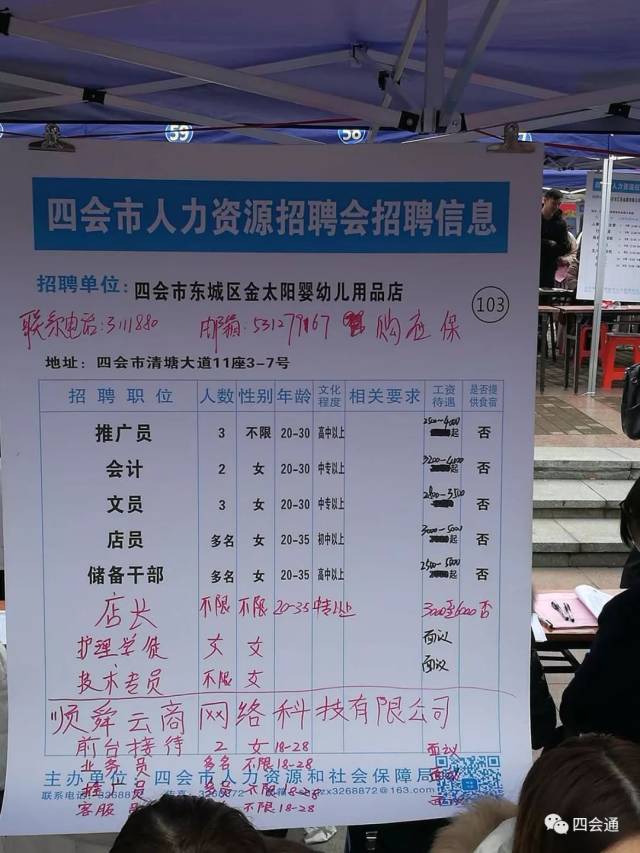 59
58
四会市人力资源招聘会招聘信息
招聘单位：四会市东城区金太阳婴幼儿用品店
103
联系电话：3111880 邮箱：531279167 购社保
地址：四会市清塘大道11座3-7号
招聘职位 人数 性别 年龄 文化程度 相关要求 工资待遇 是否提供食宿
推广员 3 不限 20-30 高中以上 2500-4000 起 否
会计 2 女 20-30 中专以上 3200-4200 起 否
文员 3 女 20-30 中专以上 2800-3500 起 否
店员 多名 女 20-35 初中以上 3000-5000 起 否
储备干部 多名 女 20-35 高中以上 2500-5000 起 否
店长 不限 不限 20-35 中专以上 3000至6000 否
护理学徒 女 女 面议
技术专员 不限 女 面议
顺舜云商网络科技有限公司
前台接待 2 女 18-28 面议
业务员 多名 不限 18-28 面议
主办单位：四会市人力资源和社会保障局
推广员 不限 18-28
联系电话 3268872 传真：3268872 zx3268872@163.com
客服 不限 18-28
四会通